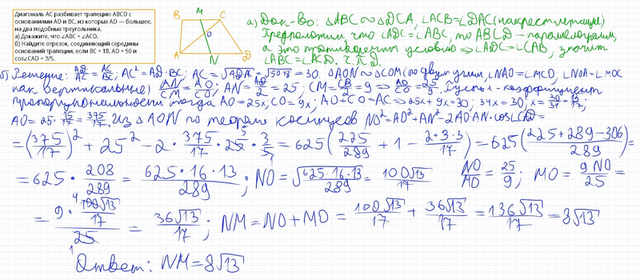 Диагональ AC разбивает трапецию ABCD с
основаниями AD и BC, из которых AD — большее,
на два подобных треугольника.
а) Докажите, что ∠ABC = ∠ACD.
б) Найдите отрезок, соединяющий середины
оснований трапеции, если BC = 18, AD = 50 и
cos∠CAD = 3/5.
B M C
O
A N D
а) Док-во: △ABC ∾ △DCA, ∠ACB=∠DAC (накрест лежащие)
Предположим, что ∠ADC=∠ABC, то ABCD – параллелограмм,
а это противоречит условию ⇒ ∠ADC=∠CAB, значит
∠ABC=∠ACD. ч.т.д.
б) Решение: AD/AC = AC/BC; AC²=AD·BC; AC=√AD·BC=√50·18=30. △AON∾△COM (по двум углам, ∠NAO=∠MCO, ∠NOA=∠MOC
как вертикальные) AN/CM = AO/CO; AN=AD/2=25; CM=CB/2=9 ⇒ AO/CO=25/9. Пусть x - коэффициент
пропорциональности тогда AO=25x, CO=9x; AO+CO=AC ⇒ 25x+9x=30; 34x=30; x=30/34=15/17;
AO=25·15/17=375/17. Из △AON по теореме косинусов NO²=AO²+AN²-2AO·AN·cos∠CAD=
=(375/17)²+25²-2·375/17·25·3/5=625(225/289+1-2·3·3/17)=625(225+289-306/289)=
=625·208/289=625·16·13/289; NO=√625·16·13/289=100√13/17 NO/MO=25/9; MO=9NO/25=
=9·100√13/17/25=36√13/17; NM=NO+MO=100√13/17+36√13/17=136√13/17=8√13
Ответ: NM=8√13